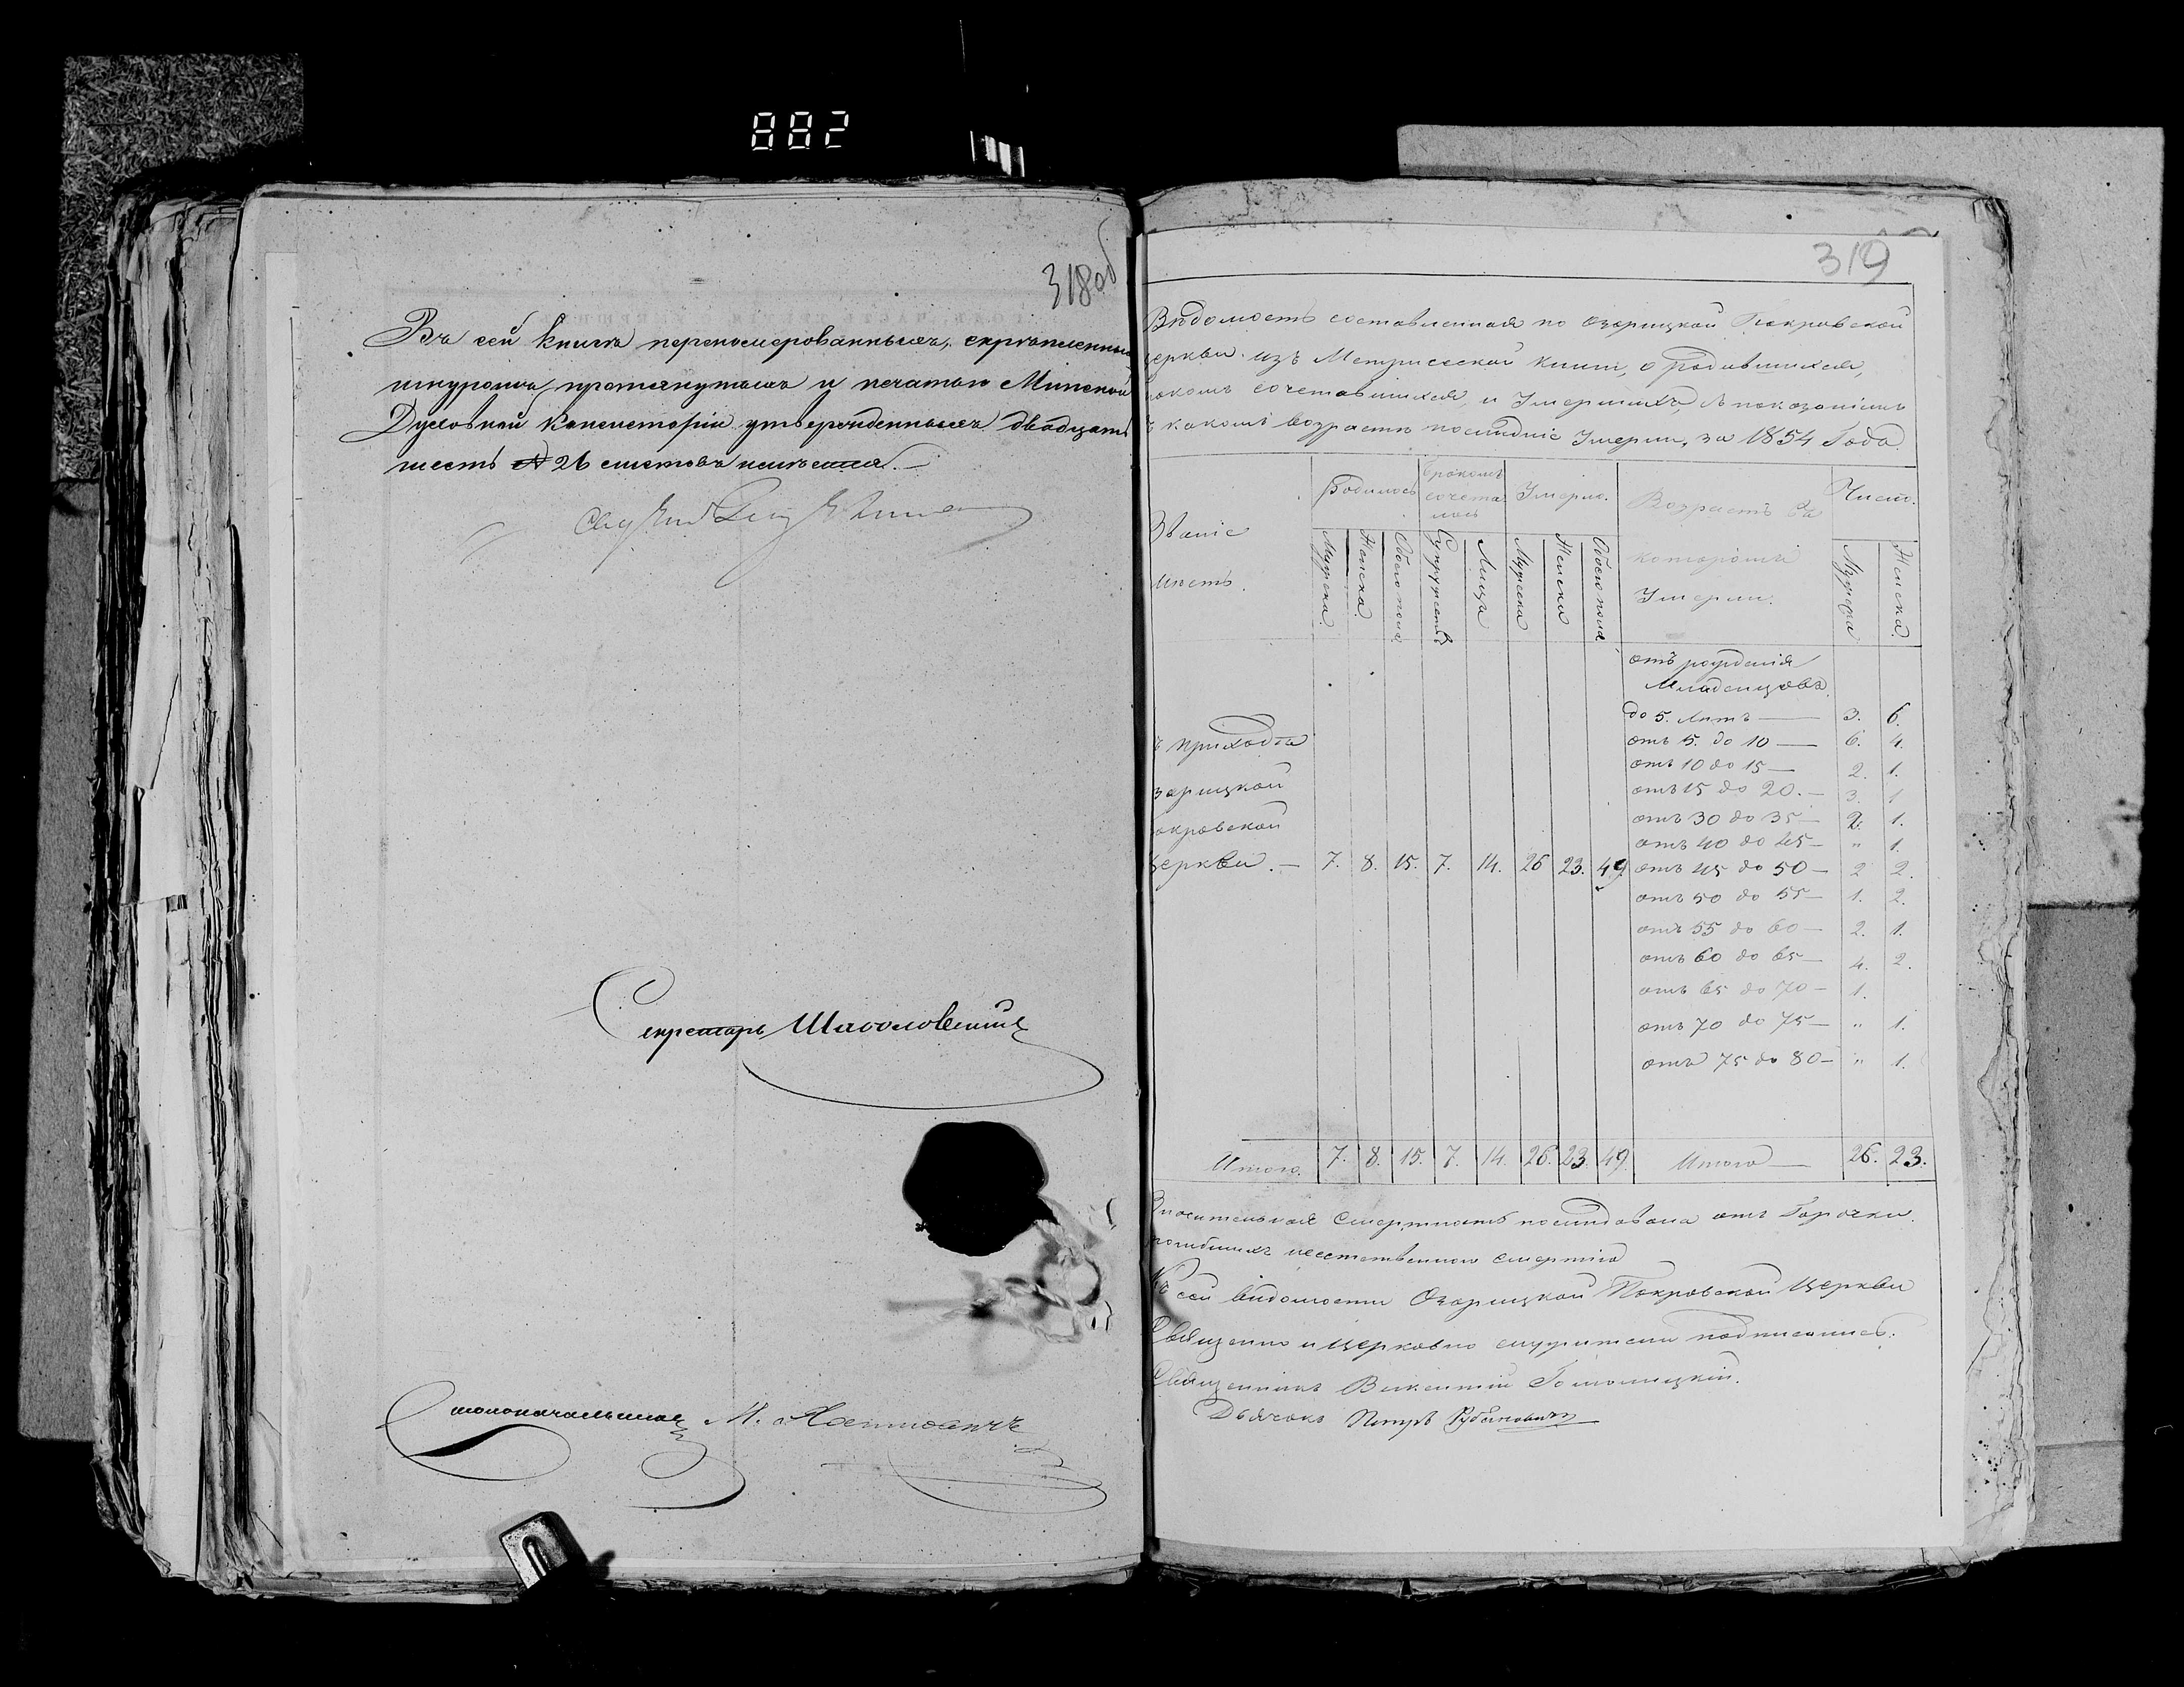 882
318об
Въ сей книгѣ перенумерованныхъ, скрѣпленныхъ
шнуромъ протянутыхъ и печатью Минской
Духовной Консисторіи утвержденныхъ двадцать
шесть 26 листовъ
Секретарь
Столоначальникъ М.
319
Вѣдомость составленная по Озарицкой Покровской
церкви изъ Метрической книги, о родившихся,
бракомъ сочетавшихся, и Умершихъ, съ показаніемъ
въ какомъ возрастѣ послѣдніе Умерли, за 1854 Года
Званіе мѣстъ.
Родилось
бракомъ сочета-лось
Умерло.
Возрастъ въ которомъ Умерли.
Число.
Мужеска. Женска. Обоего пола Супружествъ Лица Мужеска Женска Обоего пола Мужеска Женска.
отъ рожденія
Младенцовъ.
до 5. лѣтъ — 3. 6.
приходѣ отъ 5. до 10 — 6. 4.
отъ 10 до 15 — 2. 1.
зарицкой отъ 15 до 20. — 3. 1
окровской отъ 30 до 35 — 2. 1.
отъ 40 до 45 — " 1.
церкви. — 7. 8. 15. 7. 14. 26 23. 49. отъ 45 до 50 — 2 2.
отъ 50 до 55 — 1. 2.
отъ 55 до 60 — 2. 1.
отъ 60 до 65 — 4. 2.
отъ 65 до 70 — 1.
отъ 70 до 75 — " 1.
отъ 75 до 80 — " 1.
Итого. 7. 8. 15. 7. 14. 26. 23. 49. Итого — 26. 23.
Значительная Смертность послѣдовала отъ Горячки.
погибшихъ неестественною смертію
Къ сей вѣдомости Озарицкой Покровской Церкви
Священно и церковно служители подписались:
Священникъ Викентій
Дьячокъ Петръ